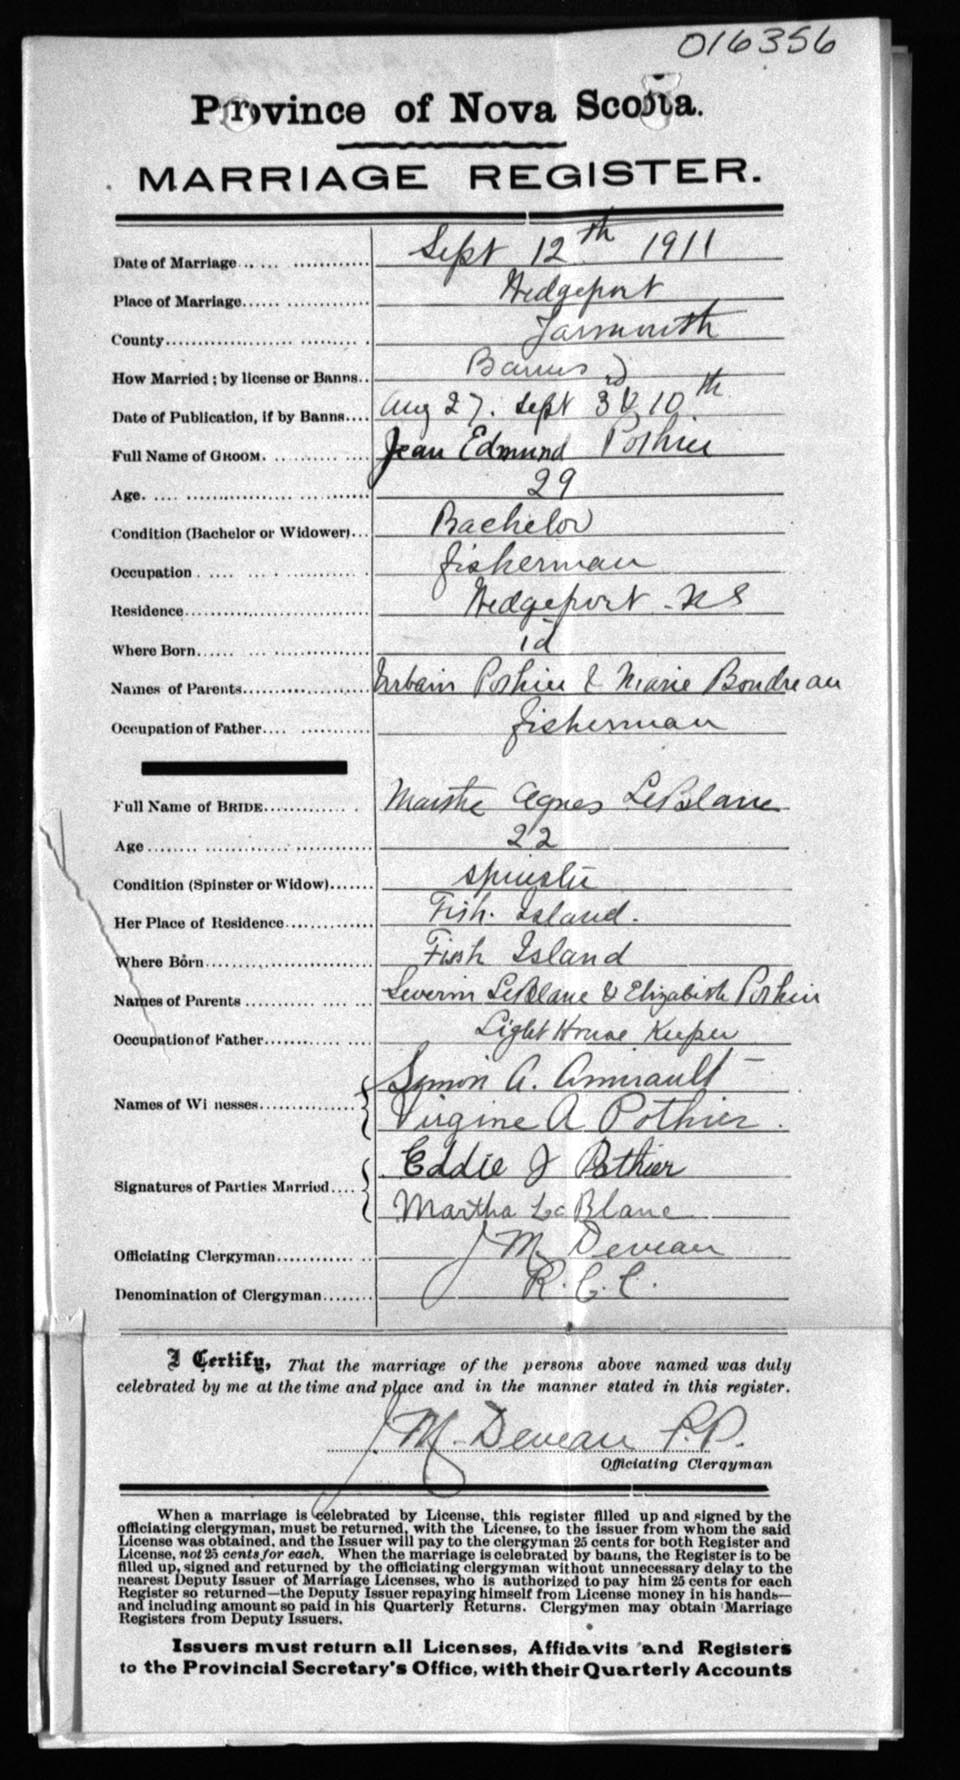 016356
Province of Nova Scotia.
MARRIAGE REGISTER.
Date of Marriage Sept 12th 1911
Place of Marriage Wedgeport
County Yarmouth
How Married; by license or Banns.. Banns
Date of Publication, if by Banns.... Aug 27. Sept 3rd & 10th
Full Name of GROOM. Jean Edmund Pothier
Age. 29
Condition (Bachelor or Widower)... Bachelor
Occupation fisherman
Residence Wedgeport N S
Where Born id
Names of Parents Urbain Pothier & Marie Boudreau
Occupation of Father fisherman
Full Name of BRIDE Marthe Agnes LeBlanc
Age 22
Condition (Spinster or Widow) spinster
Her Place of Residence Fish. Island.
Where Born Fish Island
Names of Parents Severin LeBlanc & Elizabeth Pothier
Occupation of Father Light House Keeper
Names of Wi nesses Simon A. Amirault
Virgine A Pothier.
Signatures of Parties Married.... Eddie J Pothier
Martha Le Blanc
Officiating Clergyman J M Deveau
Denomination of Clergyman R. C. C.
I Certify, That the marriage of the persons above named was duly
celebrated by me at the time and place and in the manner stated in this register.
J. M. Deveau P.P.
Officiating Clergyman
When a marriage is celebrated by License, this register filled up and signed by the
officiating clergyman, must be returned, with the License, to the issuer from whom the said
License was obtained, and the Issuer will pay to the clergyman 25 cents for both Register and
License, not 25 cents for each. When the marriage is celebrated by banns, the Register is to be
filled up, signed and returned by the officiating clergyman without unnecessary delay to the
nearest Deputy Issuer of Marriage Licenses, who is authorized to pay him 25 cents for each
Register so returned—the Deputy Issuer repaying himself from License money in his hands—
and including amount so paid in his Quarterly Returns. Clergymen may obtain Marriage
Registers from Deputy Issuers.
Issuers must return all Licenses, Affidavits and Registers
to the Provincial Secretary's Office, with their Quarterly Accounts